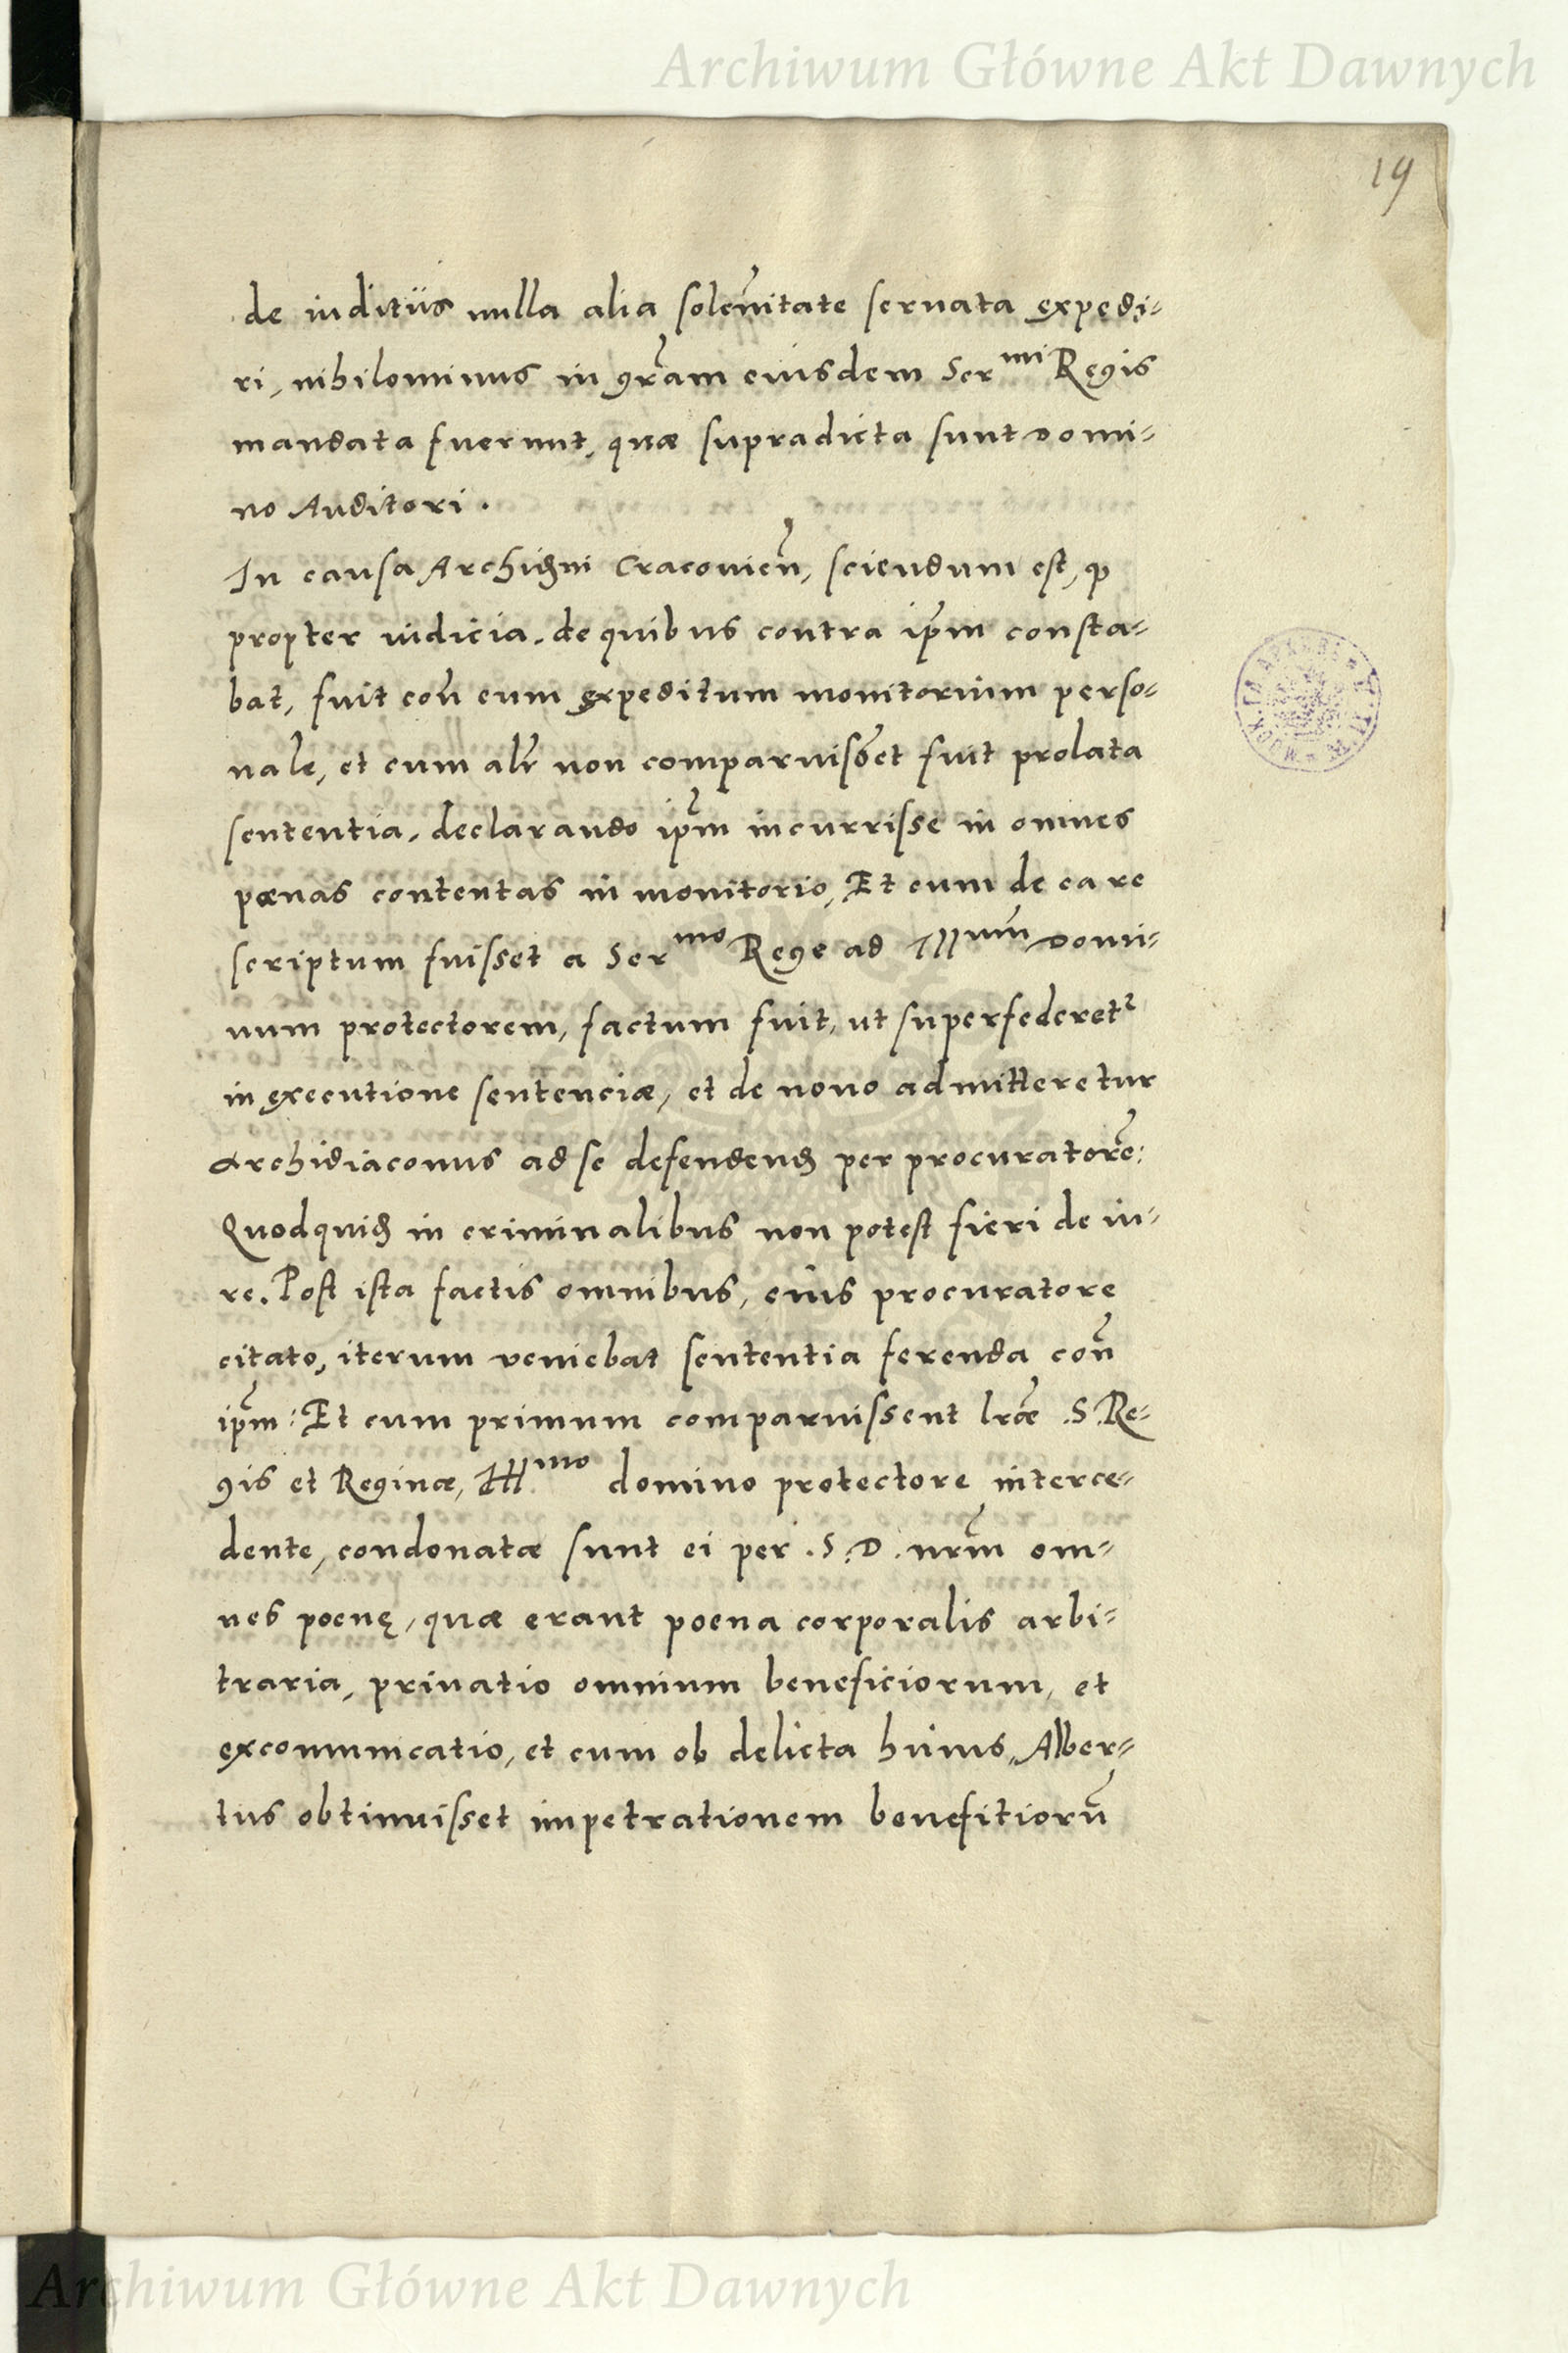 Archiwum Główne Akt Dawnych
19
de inditiis nulla alia solen̄itate seruata expedi-
ri, nihilominus in gr̄am eiusdem Ser^mi Regis
mandata fuerunt, quæ supradicta sunt Domi-
no Auditori.
In causa Archidⁿⁱ Cracouien̄, sciendum est, ꝙ
propter indicia, de quibus contra ip̄m consta-
bat, fuit con̄ eum expeditum monitorium perso-
nale, et cum alr̄ non comparuisset fuit prolata
sententia, declarando ip̄m incurrisse in omnes
pœnas contentas in monitorio, Et cum de ea re
scriptum fuisset a Ser^mo Rege ad Ill^um Domi-
num protectorem, factum fuit, ut supersederet^r
in executione sentenciæ, et de nouo admitteretur
Archidiaconus ad se defendend per procuratorē:
Quodquid in criminalibus non potest fieri de iu-
re. Post ista factis omnibus, eius procuratore
citato, iterum veniebat sententia ferenda con̄
ip̄m: Et cum primum comparuissent lr̄æ .S. Re-
gis et Reginæ, Ill^mo domino protectore interce-
dente, condonatæ sunt ei per .S.D. nr̄m om-
nes poenę, quæ erant poena corporalis arbi-
traria, priuatio omnium beneficiorum, et
excomunicatio, et cum ob delicta huius, Alber-
tus obtinuisset impetrationem benefitiorū
Archiwum Główne Akt Dawnych